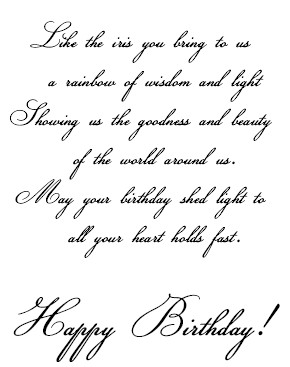 Like the iris you bring to us
a rainbow of wisdom and light
Showing us the goodness and beauty
of the world around us.
May your birthday shed light to
all your heart holds fast.
Happy Birthday!